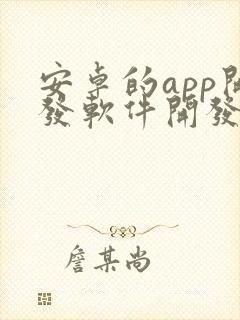 安卓的app開
發軟件開發
詹某尚